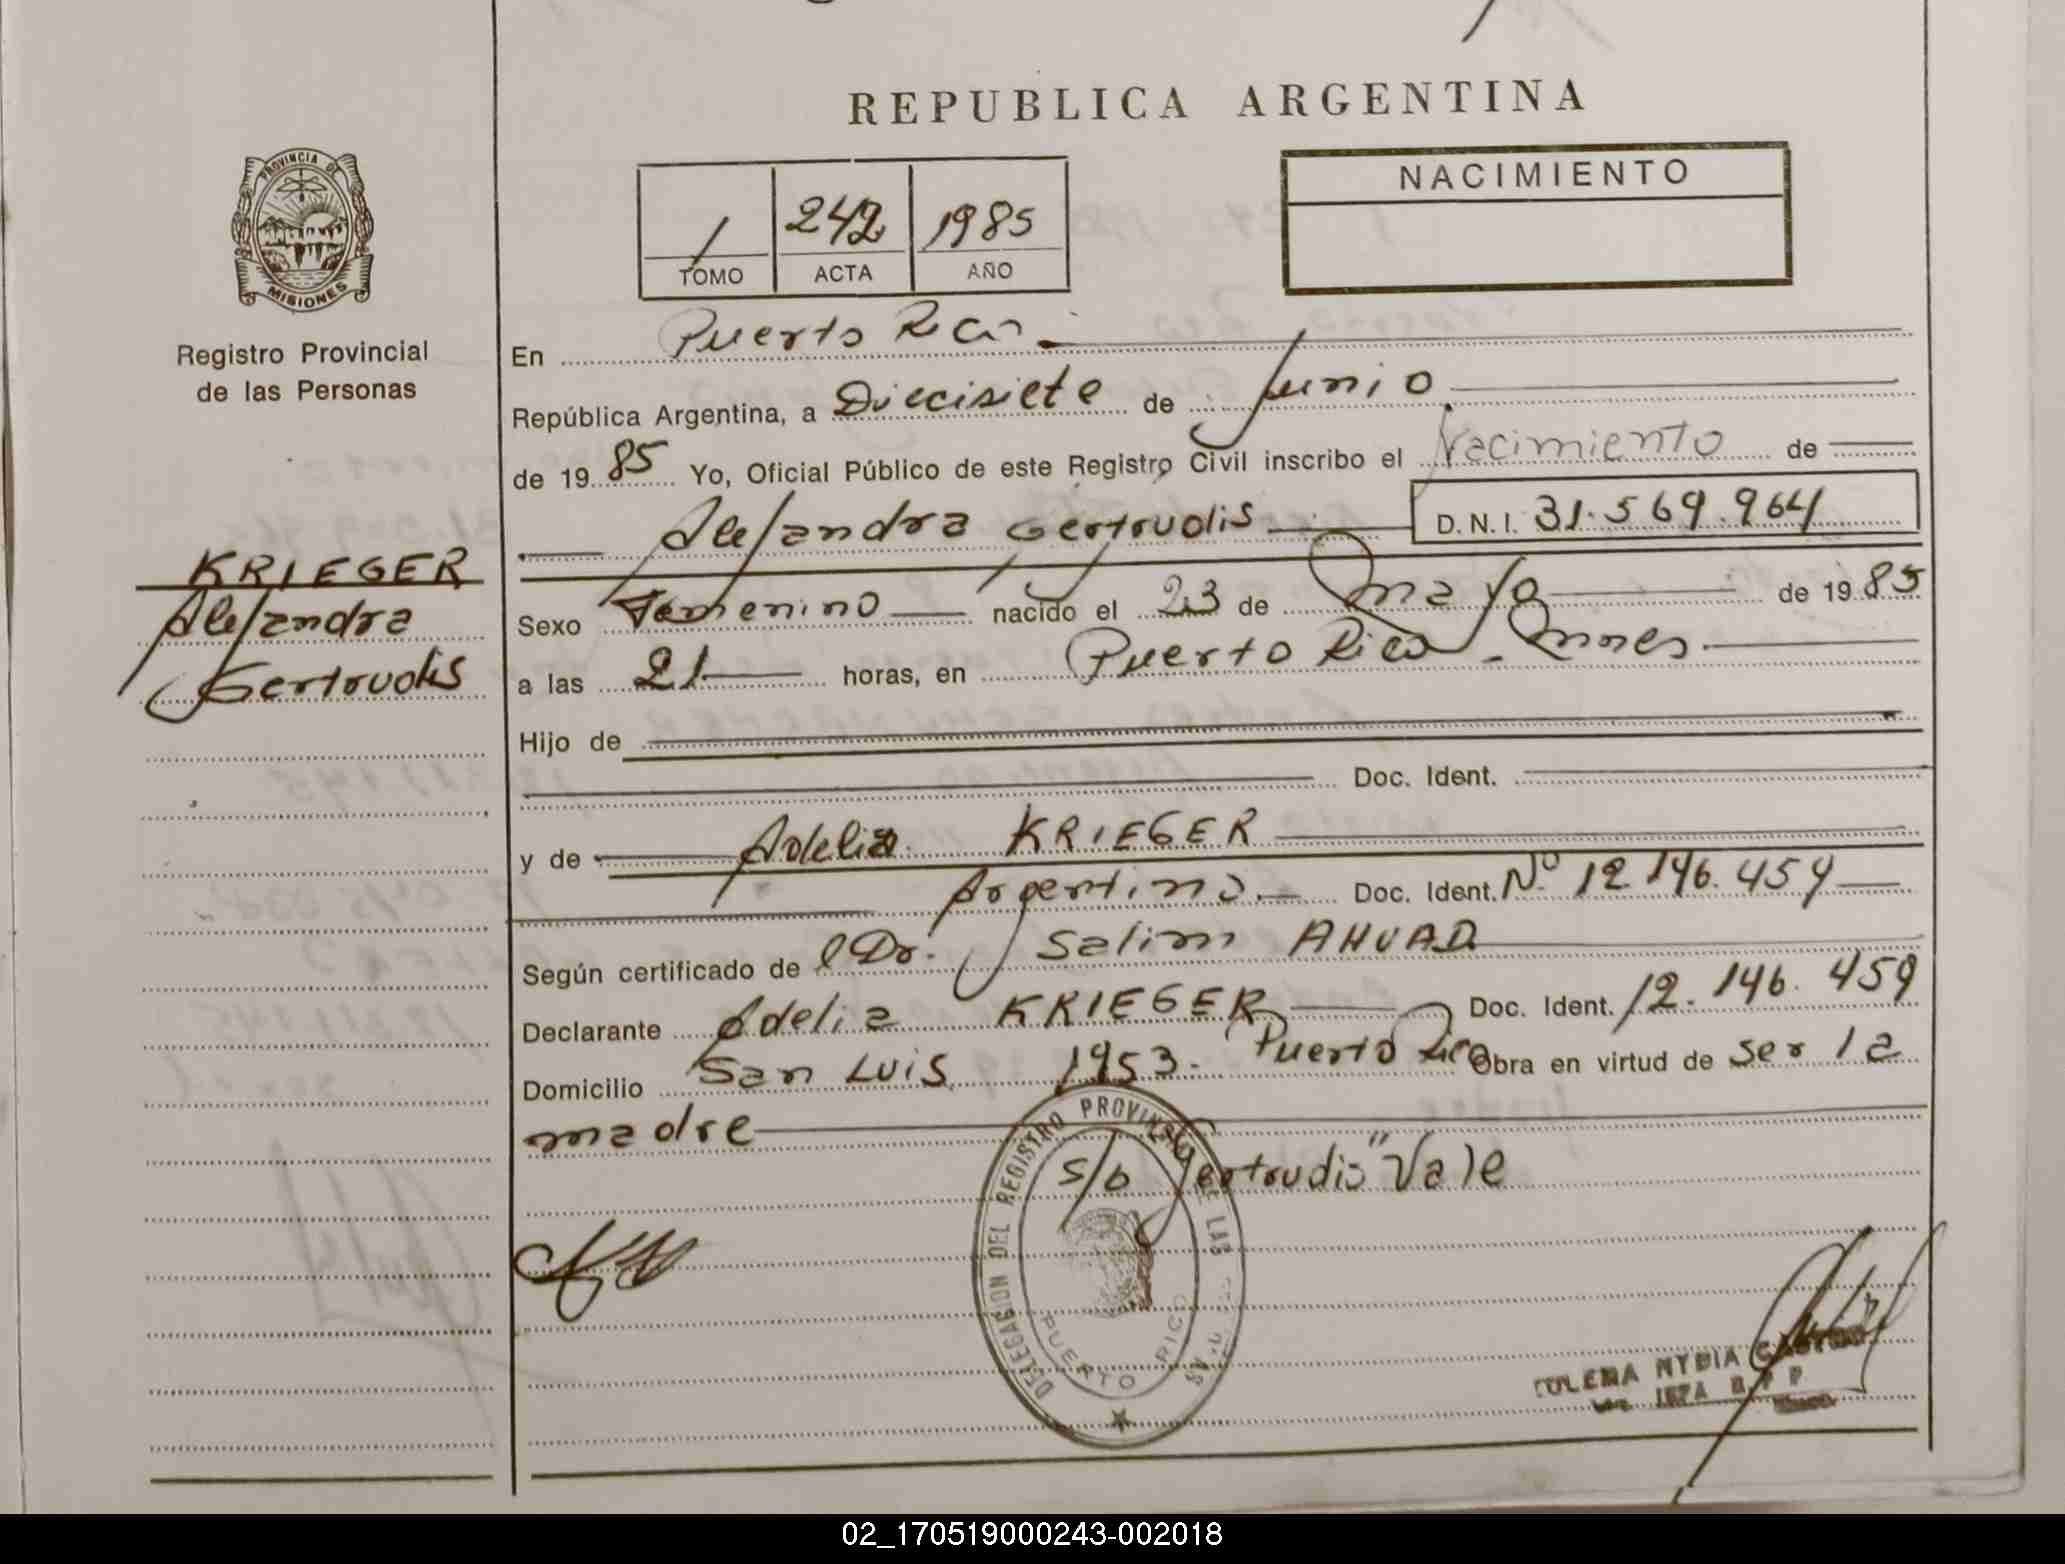 REPUBLICA ARGENTINA
PROVINCIA DE
MISIONES
Registro Provincial
de las Personas
1 242 1985
TOMO ACTA AÑO
NACIMIENTO
En Puerto Rico
República Argentina, a Diecisiete de Junio
de 1985 Yo, Oficial Público de este Registro Civil inscribo el Nacimiento de
Alejandra Gertrudis D.N.I. 31.569.964
KRIEGER
Alejandra
Gertrudis
Sexo Femenino nacido el 23 de Mayo de 1985
a las 21 horas, en Puerto Rico - Mnes
Hijo de
Doc. Ident.
y de Adelia KRIEGER
Argentina.- Doc. Ident. Nº 12.146.459
Según certificado de l Dr. Salim AHUAD
Declarante Adelia KRIEGER Doc. Ident. 12.146.459
Domicilio San Luis 1953. Puerto Rico Obra en virtud de ser la
madre
S/b Gertrudis "Vale
DELEGACION DEL REGISTRO PROVINCIAL DE LAS
PUERTO RICO
MYDIA
02_170519000243-002018